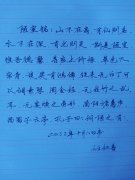 陋室铭：山不在高 有仙则名
水不在深 有龙则灵 斯是陋室
惟吾德馨 苔痕上阶绿 草色入
帘青 谈笑有鸿儒 往来无白丁 可
以调素琴 阅金经 无丝竹之乱
耳 无案牍之劳形 南阳诸葛庐
西蜀子云亭 孔子曰 何陋之有